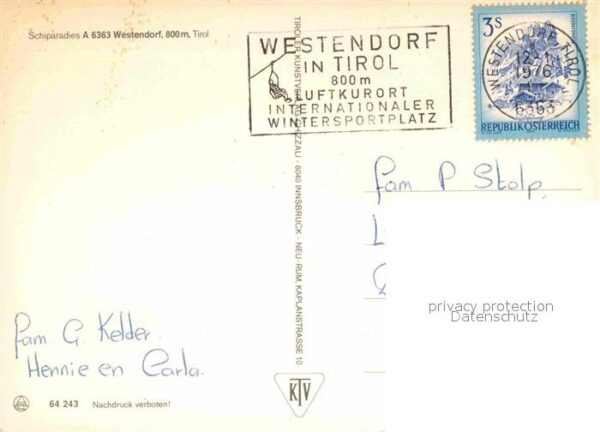 Schiparadies A 6363 Westendorf, 800 m, Tirol
WESTENDORF
IN TIROL
800 m
LUFTKURORT
INTERNATIONALER
WINTERSPORTPLATZ
3S
WESTENDORF TIROL
12.-1.
1976
6363
REPUBLIK ÖSTERREICH
TIROLER KUNSTVERLAG CHIZZALI · 6040 INNSBRUCK · NEU-RUM, KAPLANSTRASSE 10
fam P Stolp.
privacy protection
Datenschutz
fam. G. Kelder.
Hennie en Carla.
64 243 Nachdruck verboten!
KTV